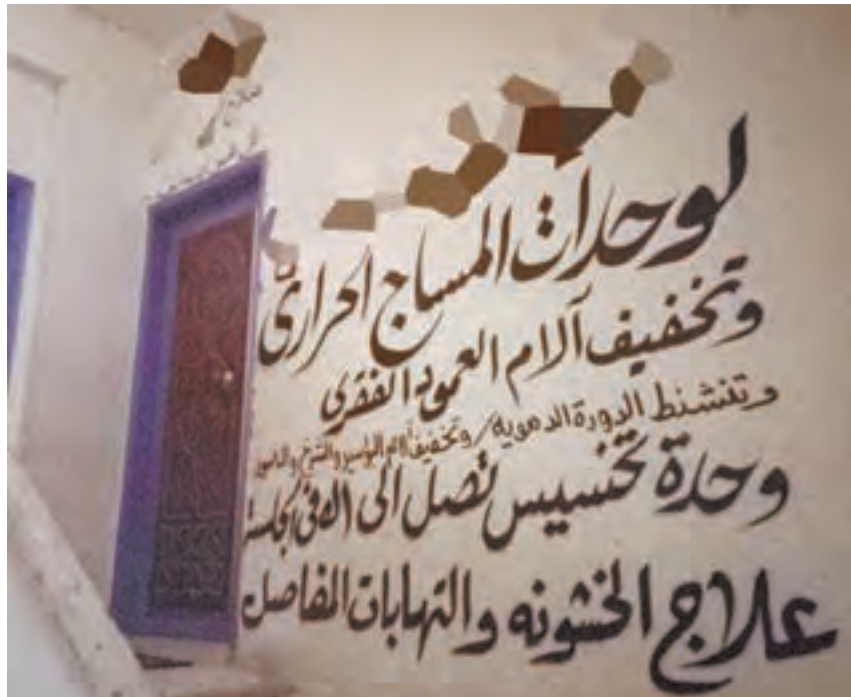 لوحدات المساج الحراري
وتخفيف آلام العمود الفقري
وتنشط الدورة الدمويه / وتخفيف آلام البواسير والشرخ والناسور
وحدة تخسيس تصل الى في الجلسة
علاج الخشونه والتهابات المفاصل